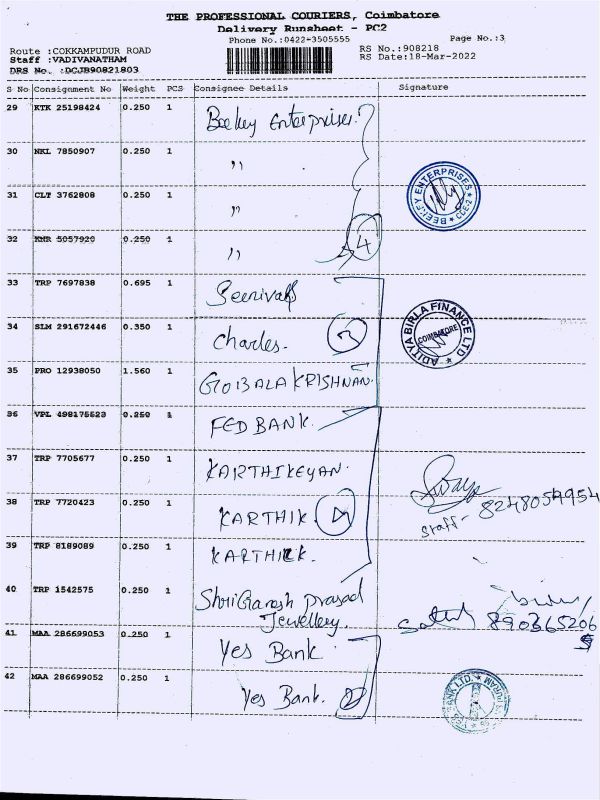 THE PROFESSIONAL COURIERS, Coimbatore
Delivery Runsheet - PC2
Phone No.:0422-3505555
Page No.:3
Route :COKKAMPUDUR ROAD
RS No.:908218
Staff :VADIVANATHAM
RS Date:18-Mar-2022
DRS No. :DCJB90821803
S No Consignment No Weight PCS Consignee Details Signature
29 KTK 25198424 0.250 1 Beekey Enterprises.
30 NKL 7850907 0.250 1 ,,
31 CLT 3762808 0.250 1 ,,
BEEKEY ENTERPRISES CBE-2
32 KNR 5057920 0.250 1 ,, 4
33 TRP 7697838 0.695 1
34 SLM 291672446 0.350 1 Charles.
ADITYA BIRLA FINANCE LTD COIMBATORE
35 PRO 12938050 1.560 1 GOBALA KRISHNAN.
36 VPL 498175523 0.250 1 FED BANK.
37 TRP 7705677 0.250 1 KARTHIKEYAN.
38 TRP 7720423 0.250 1 KARTHIK.
Staff- 8248059954
39 TRP 8189089 0.250 1 KARTHICK.
40 TRP 1542575 0.250 1 Shri Ganesh prasad
Jewellery.
41 MAA 286699053 0.250 1 Yes Bank.
42 MAA 286699052 0.250 1 Yes Bank. 2
BANK LTD.